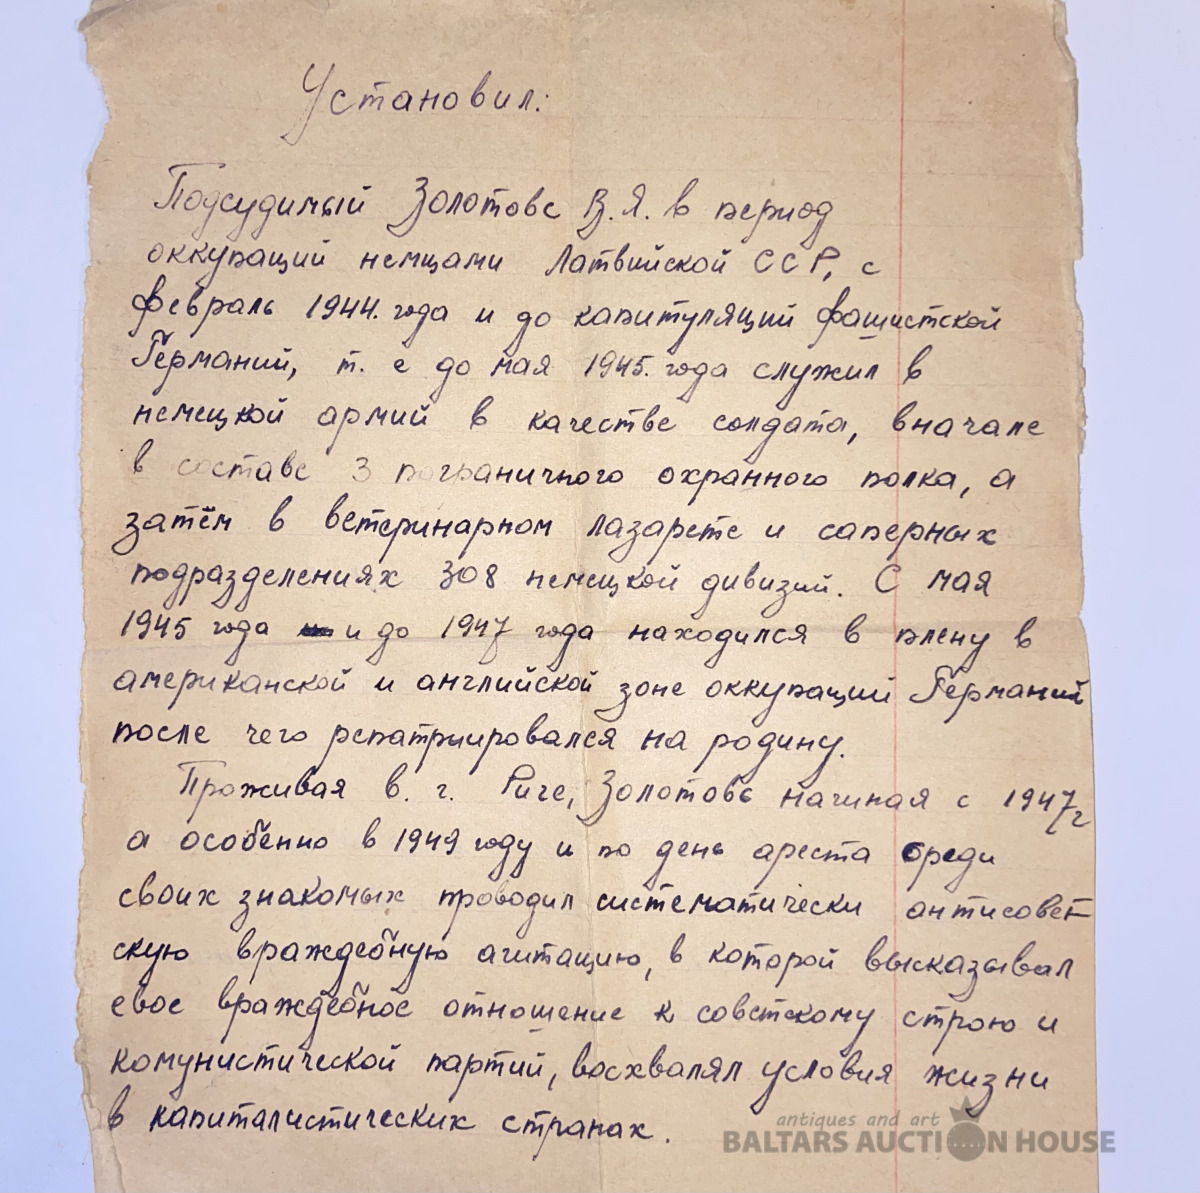 Установил:
Подсудимый Золотовс В.Я. в период
оккупаций немцами Латвийской ССР, с
февраль 1944. года и до капитуляций фашистской
Германий, т. е до мая 1945. года служил в
немецкой армий в качестве солдата, вначале
в составе 3 пограничного охранного полка, а
затём в ветеринарном лазарете и саперных
подразделениях 308 немецкой дивизий. С мая
1945 года и до 1947 года находился в плену в
американской и английской зоне оккупаций Германий
после чего репатриировался на родину.
Проживая в. г. Риге, Золотовс начиная с 1947г
а особенно в 1949 году и по день ареста среди
своих знакомых проводил систематически антисовет-
скую враждебную агитацию, в которой высказывал
свое враждебное отношение к советскому строю и
комунистической партий, восхвалял условия жизни
в капиталистических странах.
antiques and art
BALTARS AUCTION HOUSE